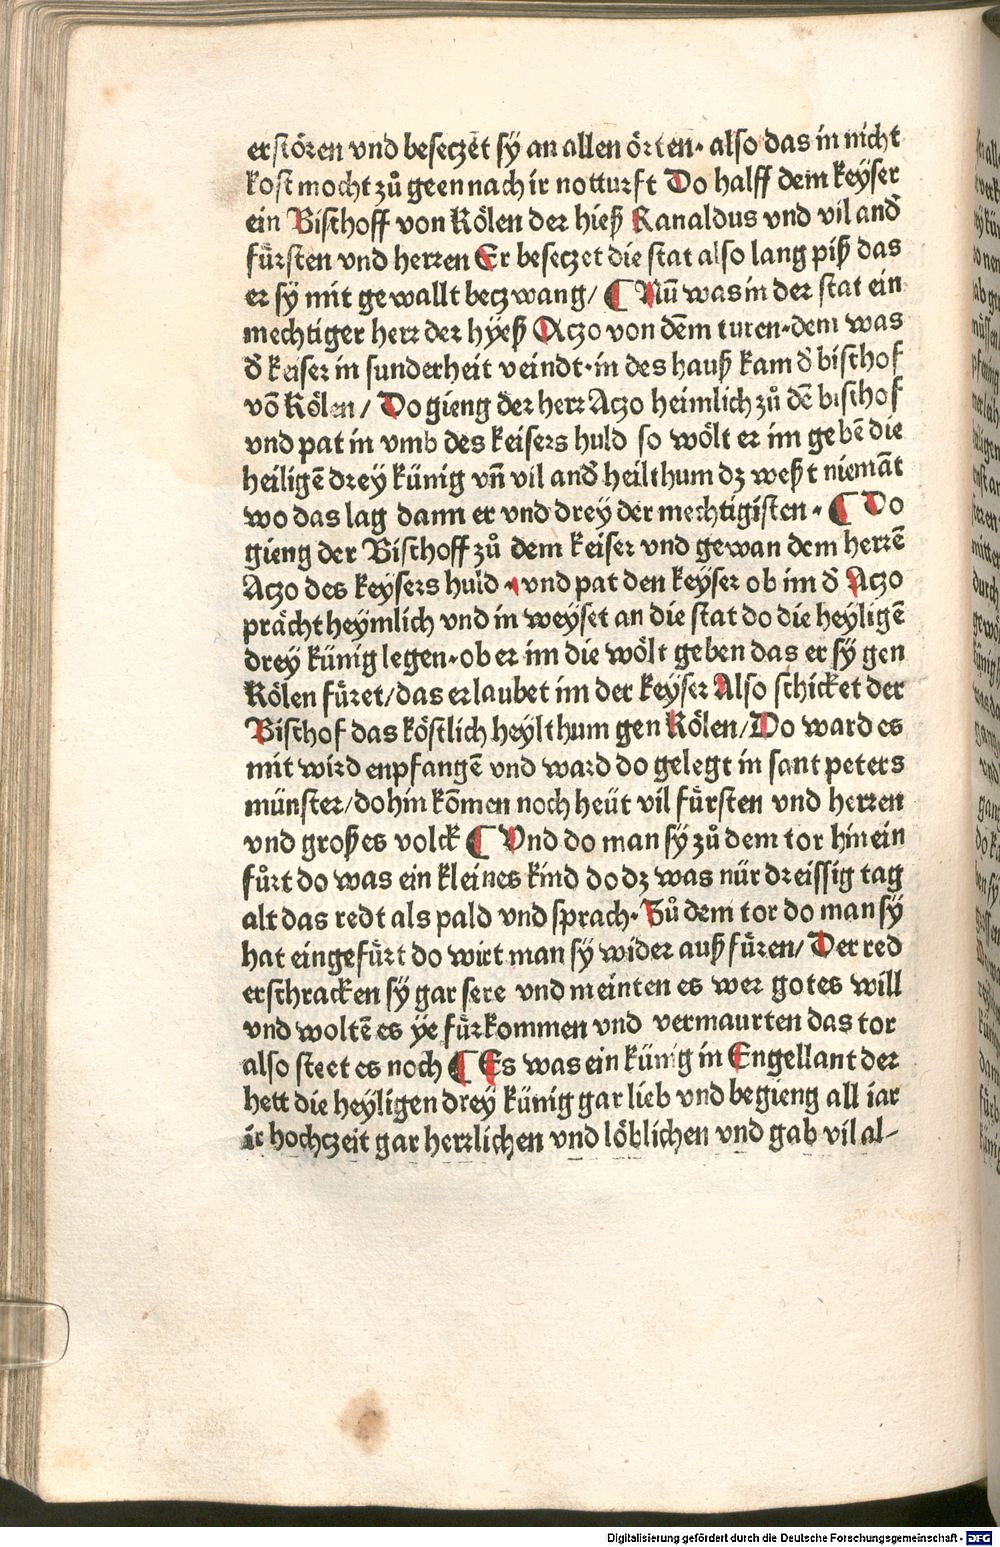 erstören vnd beseczēt sy an allen örten· also das in nicht
kost mocht zů geen nach ir notturft Do halff dem keyser
ein Bischoff von Kölen der hieß Ranaldus vnd vil and̄
fürsten vnd herren Er beseczet die stat also lang piß das
er sy mit gewallt beczwang/ ¶ Nū was in der stat ein
mechtiger herr der hyeß Aczo von dem turen·dem was
d̄ keiser in sunderheit veindt·in des hauß kam d̄ bischof
vō Kölen/ Do gieng der herr Aczo heimlich zů dē bischof
vnd pat in vmb des keisers huld so wölt er im gebē die
heiligē drey künig vn̄ vil and̄ heilthum dz weßt niemāt
wo das lag dann er vnd drey der mechtigisten · ¶ Do
gieng der Bischoff zů dem keiser vnd gewan dem herrē
Aczo des keysers huld · vnd pat den keyser ob im d̄ Aczo
prächt heymlich vnd in weyset an die stat do die heyligē
drey künig legen·ob er im die wölt geben das er sy gen
Kölen füret/das erlaubet im der keyser Also schicket der
Bischof das köstlich heylthum gen Kölen/Do ward es
mit wird enpfangē vnd ward do gelegt in sant peters
münster/dohin kōmen noch heüt vil fürsten vnd herren
vnd großes volck ¶ Vnd do man sy zů dem tor hinein
fůrt do was ein kleines kind do dz was nür dreissig tag
alt das redt als pald vnd sprach· Zů dem tor do man sy
hat eingefürt do wirt man sy wider auß füren/ Der red
erschracken sy gar sere vnd meinten es wer gotes will
vnd woltē es ye fürkommen vnd vermaurten das tor
also steet es noch ¶ Es was ein künig in Engellant der
hett die heyligen drey künig gar lieb vnd begieng all iar
ir hochczeit gar herrlichen vnd löblichen vnd gab vil al-
Digitalisierung gefördert durch die Deutsche Forschungsgemeinschaft - DFG